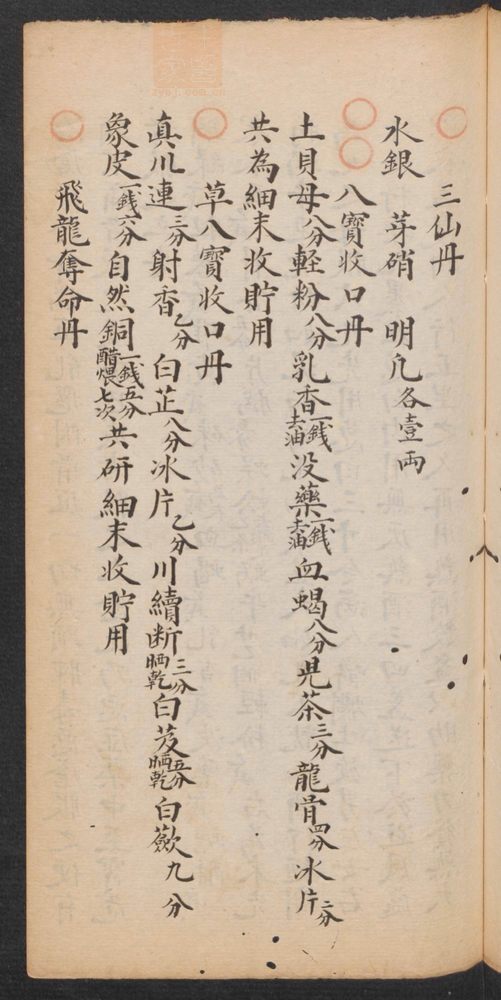 三仙丹
水銀 芽硝 明凢各壹兩
八寳收口丹
土貝母八分輕粉八分乳香一錢去油沒藥一錢去油血蝎八分児茶三分龍骨四分冰片二分
共為細末收貯用
草八寳收口丹
真川連三分射香乙分白芷八分冰片乙分川續断三分晒乾白芨五分晒乾白蘞九分
象皮一錢六分自然銅一錢五分醋煨七次共研細末收貯用
飛龍奪命丹